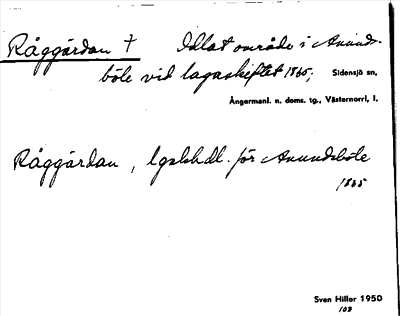 Råggärdan † Idlat område i Anunds-
böle vid lagaskiftet 1865; Sidensjö sn,
Ångermanl. n. doms. tg., Västernorrl. l.
Råggärdan, lgskhdl. för Anundsböle
1865
Sven Hiller 1950
102